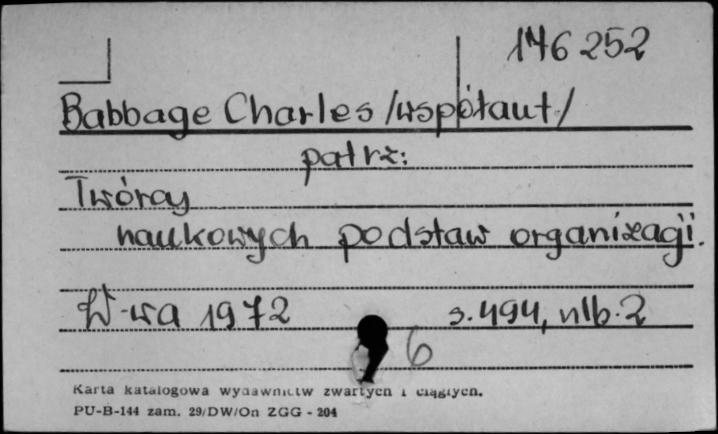 146 252
Babbage Charles /współaut/
patrz:
Twórcy
naukowych podstaw organizacji.
W-wa 1972 s. 494, nlb. 2
6
Karta katalogowa wydawnictw zwartych i ciągłych.
PU-B-144 zam. 29/DW/On ZGG - 204